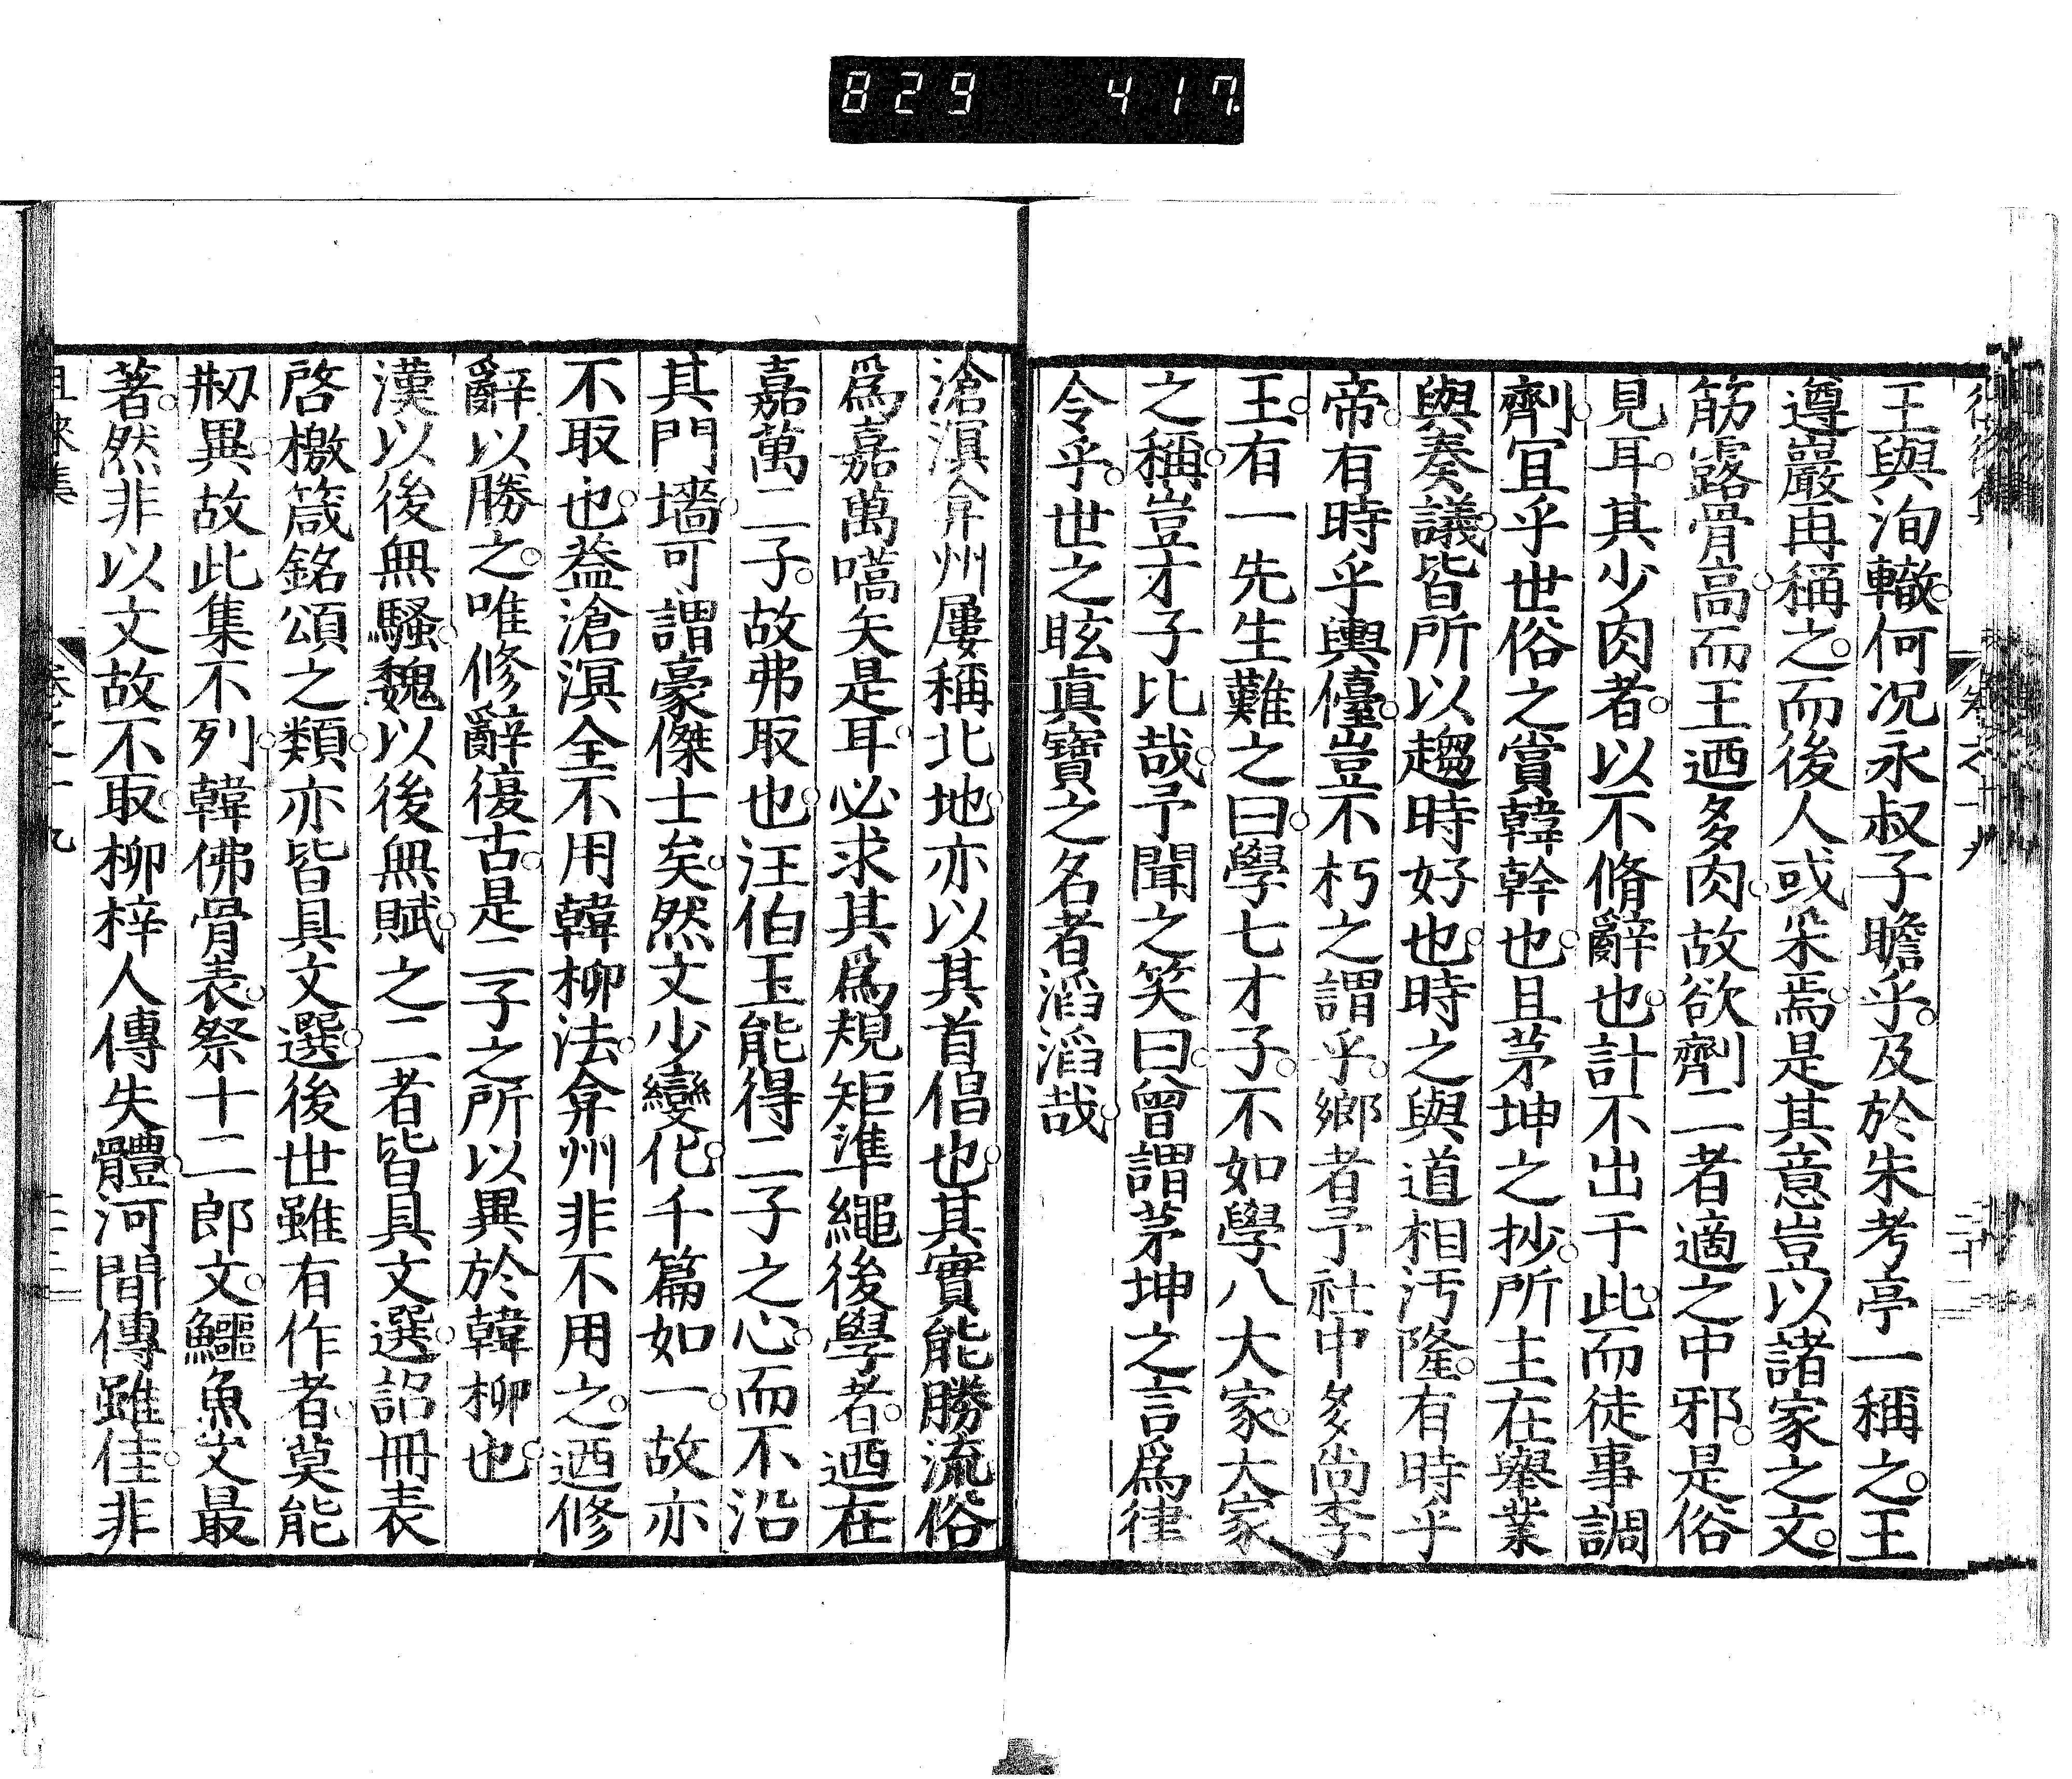 829 417
王與洵轍何況永叔子瞻乎及於朱考亭一稱之王
遵巖再稱之而後人或采焉是其意豈以諸家之文
筋露骨高而王迺多肉故欲劑二者適之中邪是俗
見耳其少肉者以不脩辭也計不出于此而徒事調
劑宜乎世俗之賞韓幹也且茅坤之抄所主在舉業
與奏議皆所以趨時好也時之與道相污隆有時乎
帝有時乎輿儓豈不朽之謂乎鄉者予社中多尚李
王有一先生難之曰學七才子不如學八大家大家
之稱豈才子比哉予聞之笑曰曾謂茅坤之言爲律
令乎世之眩眞寶之名者滔滔哉
滄溟弇州屢稱北地亦以其首倡也其實能勝流俗
爲嘉萬嚆矢是耳必求其爲規矩準繩後學者迺在
嘉萬二子故弗取也汪伯玉能得二子之心而不沿
其門墻可謂豪傑士矣然文少變化千篇如一故亦
不取也葢滄溟全不用韓柳法弇州非不用之迺修
辭以勝之唯修辭復古是二子之所以異於韓柳也
漢以後無騷魏以後無賦之二者皆具文選詔冊表
啓檄箴銘頌之類亦皆具文選後世雖有作者莫能
剏異故此集不列韓佛骨表祭十二郎文鱷魚文最
著然非以文故不取柳梓人傳失體河間傳雖佳非
徂徠集 卷之十九